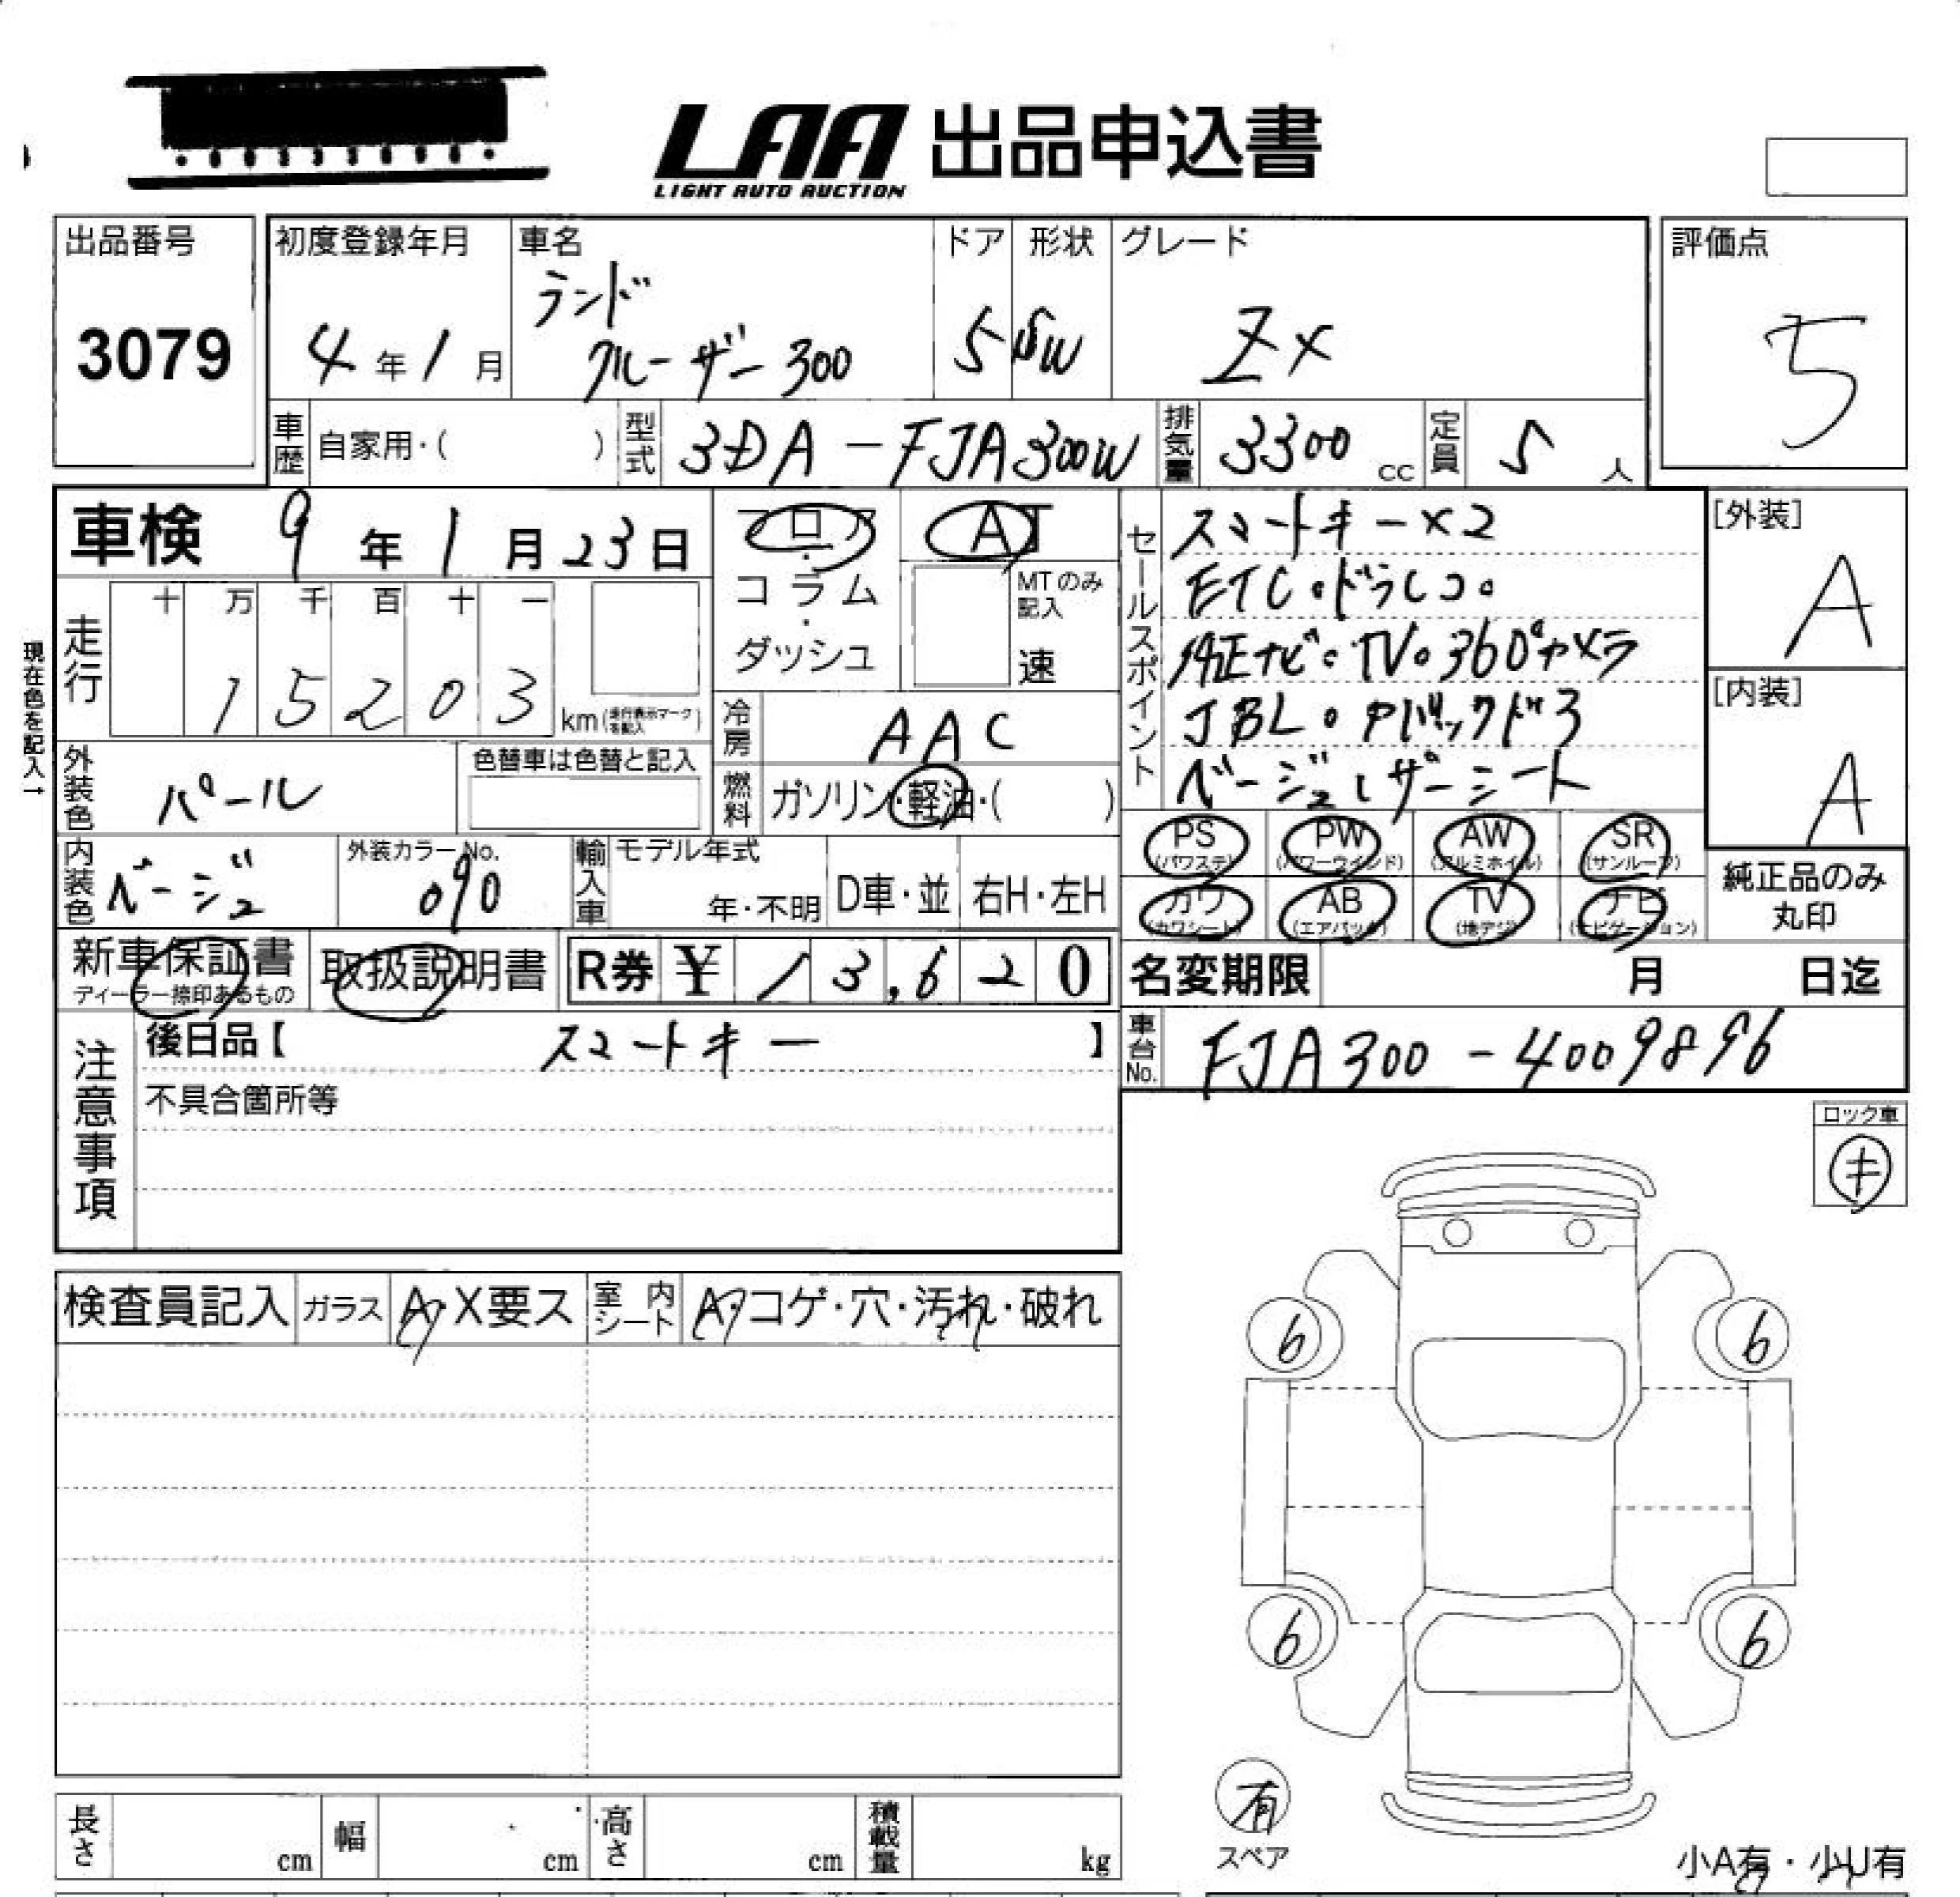 LAA 出品申込書
LIGHT AUTO AUCTION
出品番号
3079
初度登録年月
4年1月
車名
ランド
クルーザー300
ドア
5
形状
SW
グレード
ZX
評価点
5
車歴 自家用・( )
型式 3DA-FJA300W
排気量 3300 cc
定員 5 人
車検 9年1月23日
フロア・コラム・ダッシュ
AT
MTのみ記入
速
セールスポイント
スマートキー×2
ETC。ドラレコ。
純正ナビ。TV。360°カメラ
JBL。Pバックドア
ベージュレザーシート
[外装]
A
[内装]
A
現在色を記入↑
走行
十 万 千 百 十 一
1 5 2 0 3 km
冷房 AAC
燃料 ガソリン・軽油・( )
外装色 パール
色替車は色替と記入
内装色 ベージュ
外装カラーNo.
090
輸入車
モデル年式
年・不明
D車・並
右H・左H
PS (パワステ)
PW (パワーウインド)
AW (アルミホイル)
SR (サンルーフ)
カワ (カワシート)
AB (エアバック)
TV (地デジ)
ナビ (ナビゲーション)
純正品のみ
丸印
新車保証書
ディーラー捺印あるもの
取扱説明書
R券 ¥ 13,620
名変期限 月 日迄
車台No. FJA300-4009896
注意事項
後日品【 スマートキー 】
不具合箇所等
ロック車
キ
検査員記入
ガラス A・X要ス
室内シート A・コゲ・穴・汚れ・破れ
6
6
6
6
有
スペア
長さ cm
幅 cm
高さ cm
積載量 kg
小A有・小U有